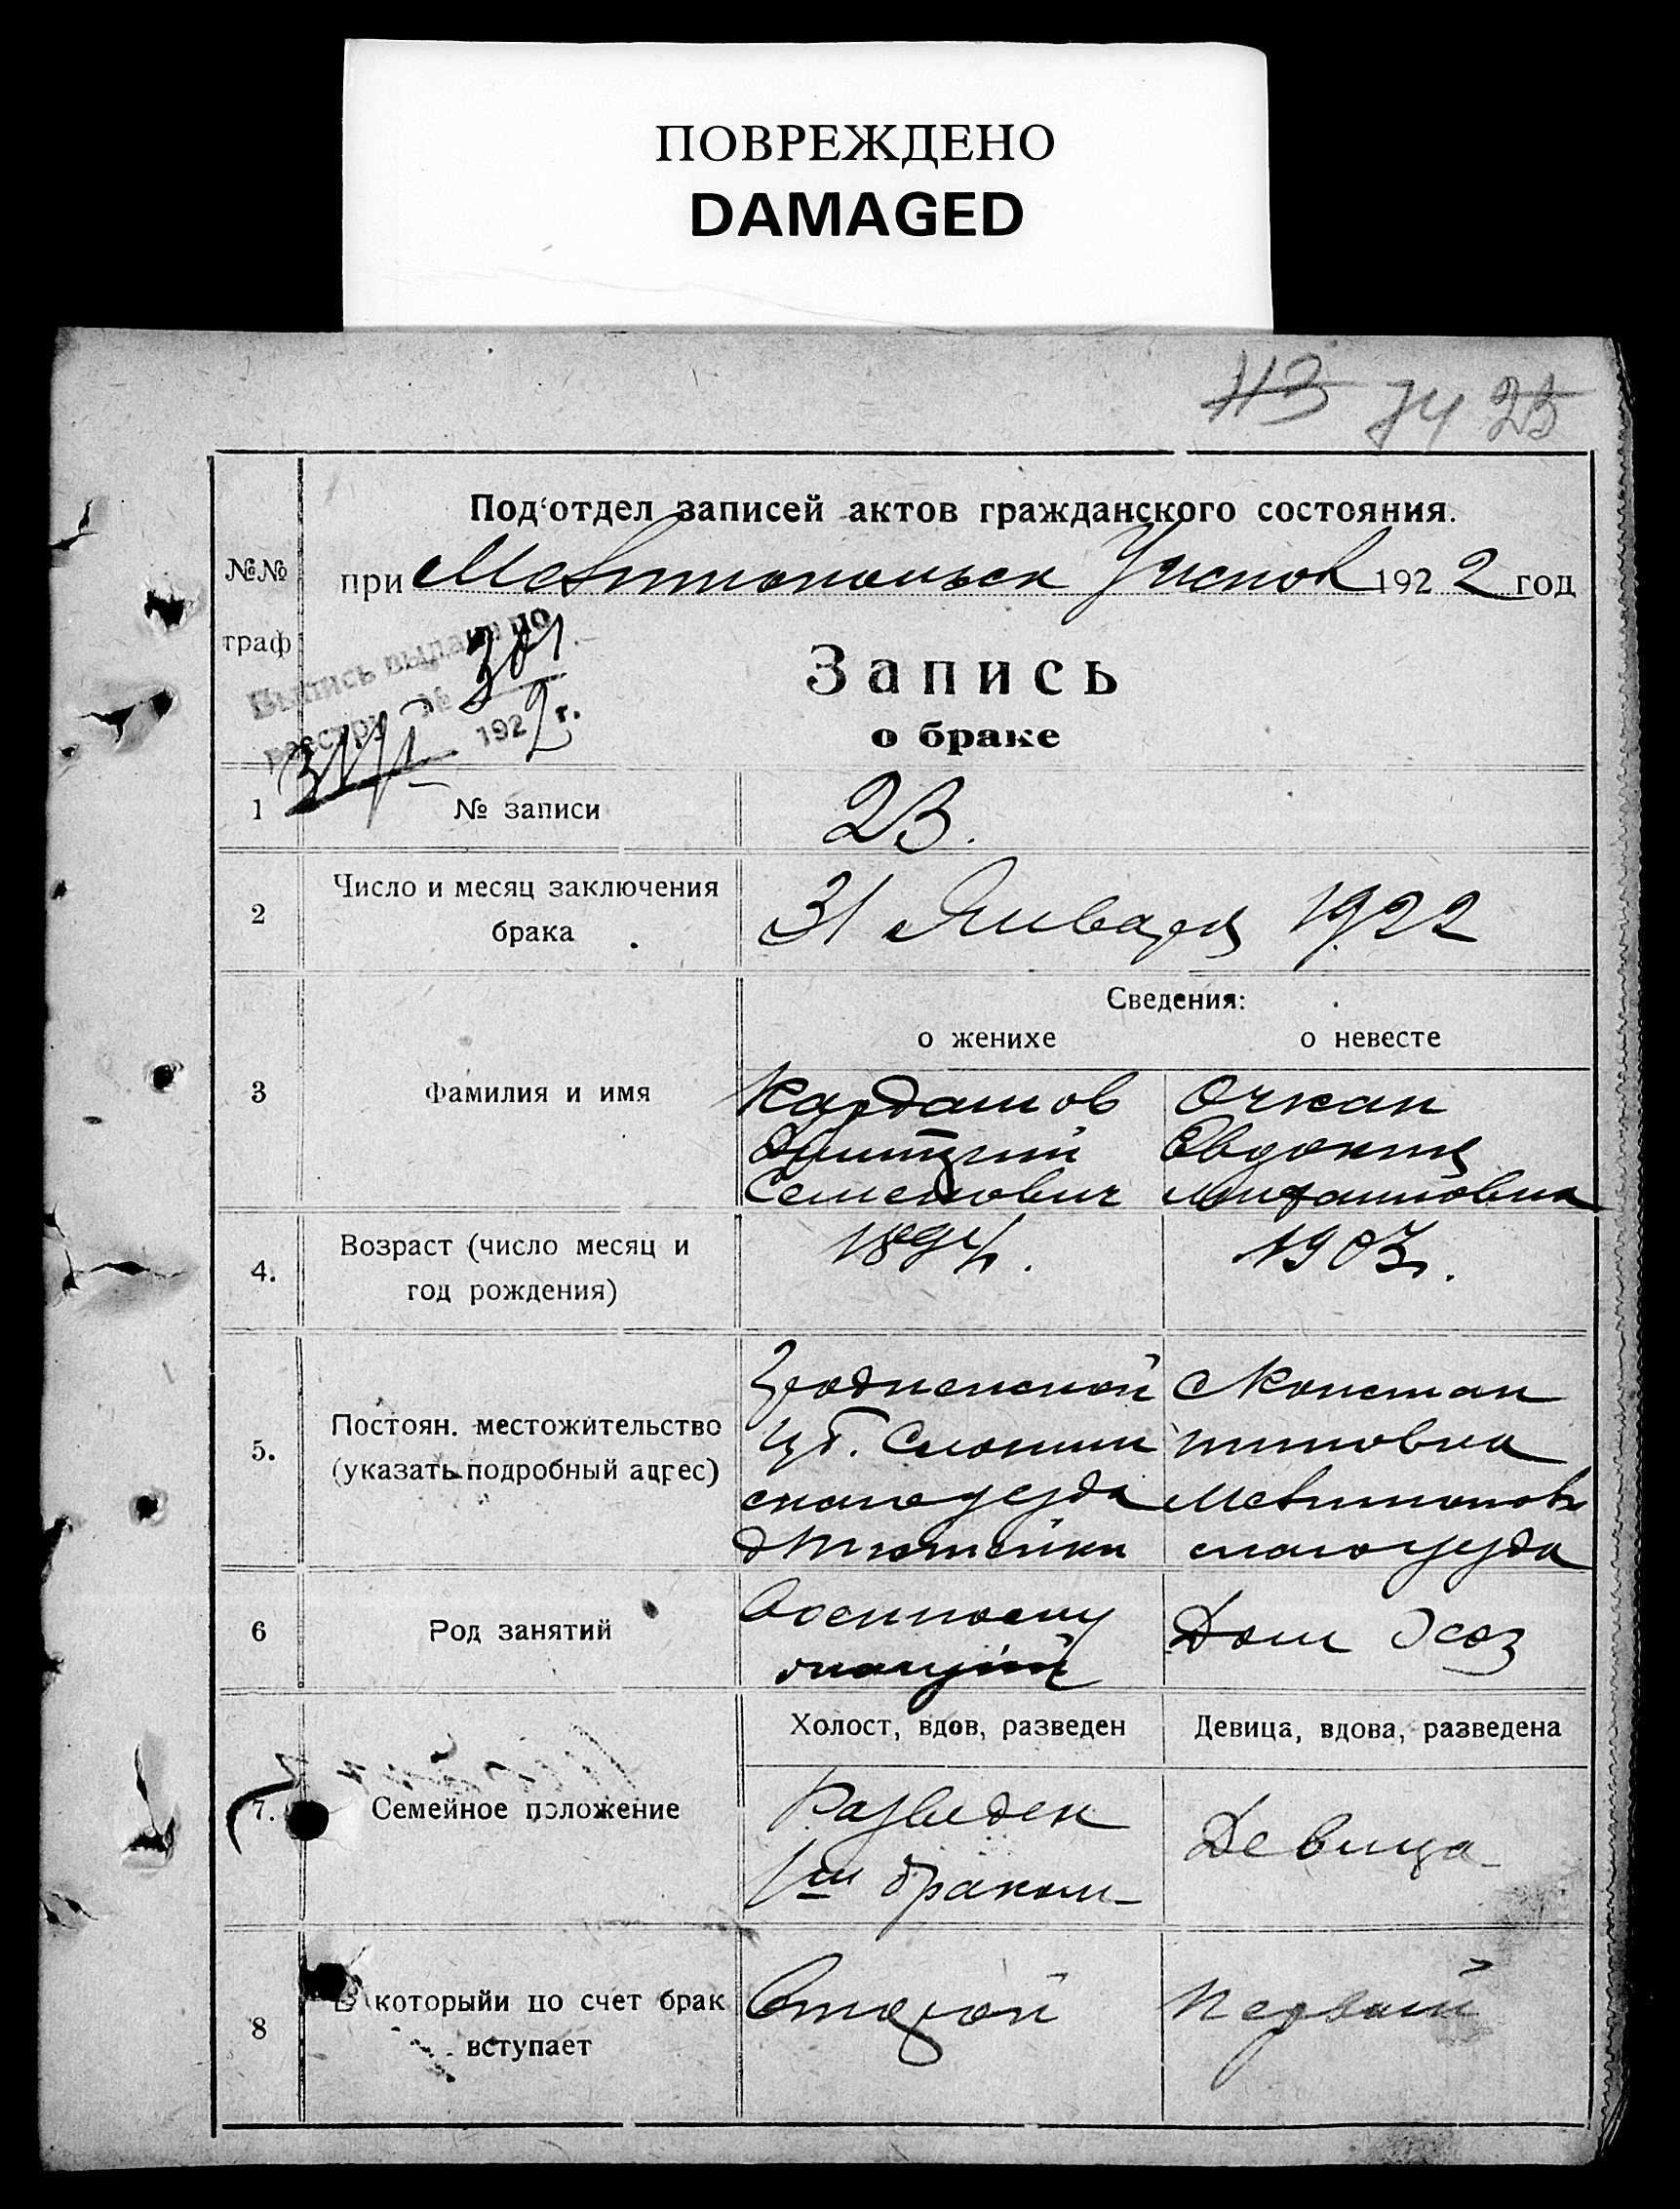 ПОВРЕЖДЕНО
DAMAGED
113 74 25
Под‘отдел записей актов гражданского состояния.
№№ граф
при Мелитопольск Уиспол 1922 год
Выпись выдана по
реестру № 301
31/I 1922 г.
Запись
о браке
1 № записи 23.
2 Число и месяц заключения
брака 31 Января 1922
Сведения:
о женихе о невесте
3 Фамилия и имя Кардашов Очкан
Дмитрий Евдокия
Семенович Митановна
4. Возраст (число месяц и
год рождения) 1894. 1903.
5. Постоян. местожительство
(указать подробный адрес)
Гродненской с Констан
Губ. Слоним тиновка
скаго уезда Мелитополь
д скаго уезда
6 Род занятий Военнослу Дом Хоз
жащий
Холост, вдов, разведен Девица, вдова, разведена
7. Семейное положение Разведен Девица
1ым браком
8 В которыйи по счет брак
вступает Второй Первый